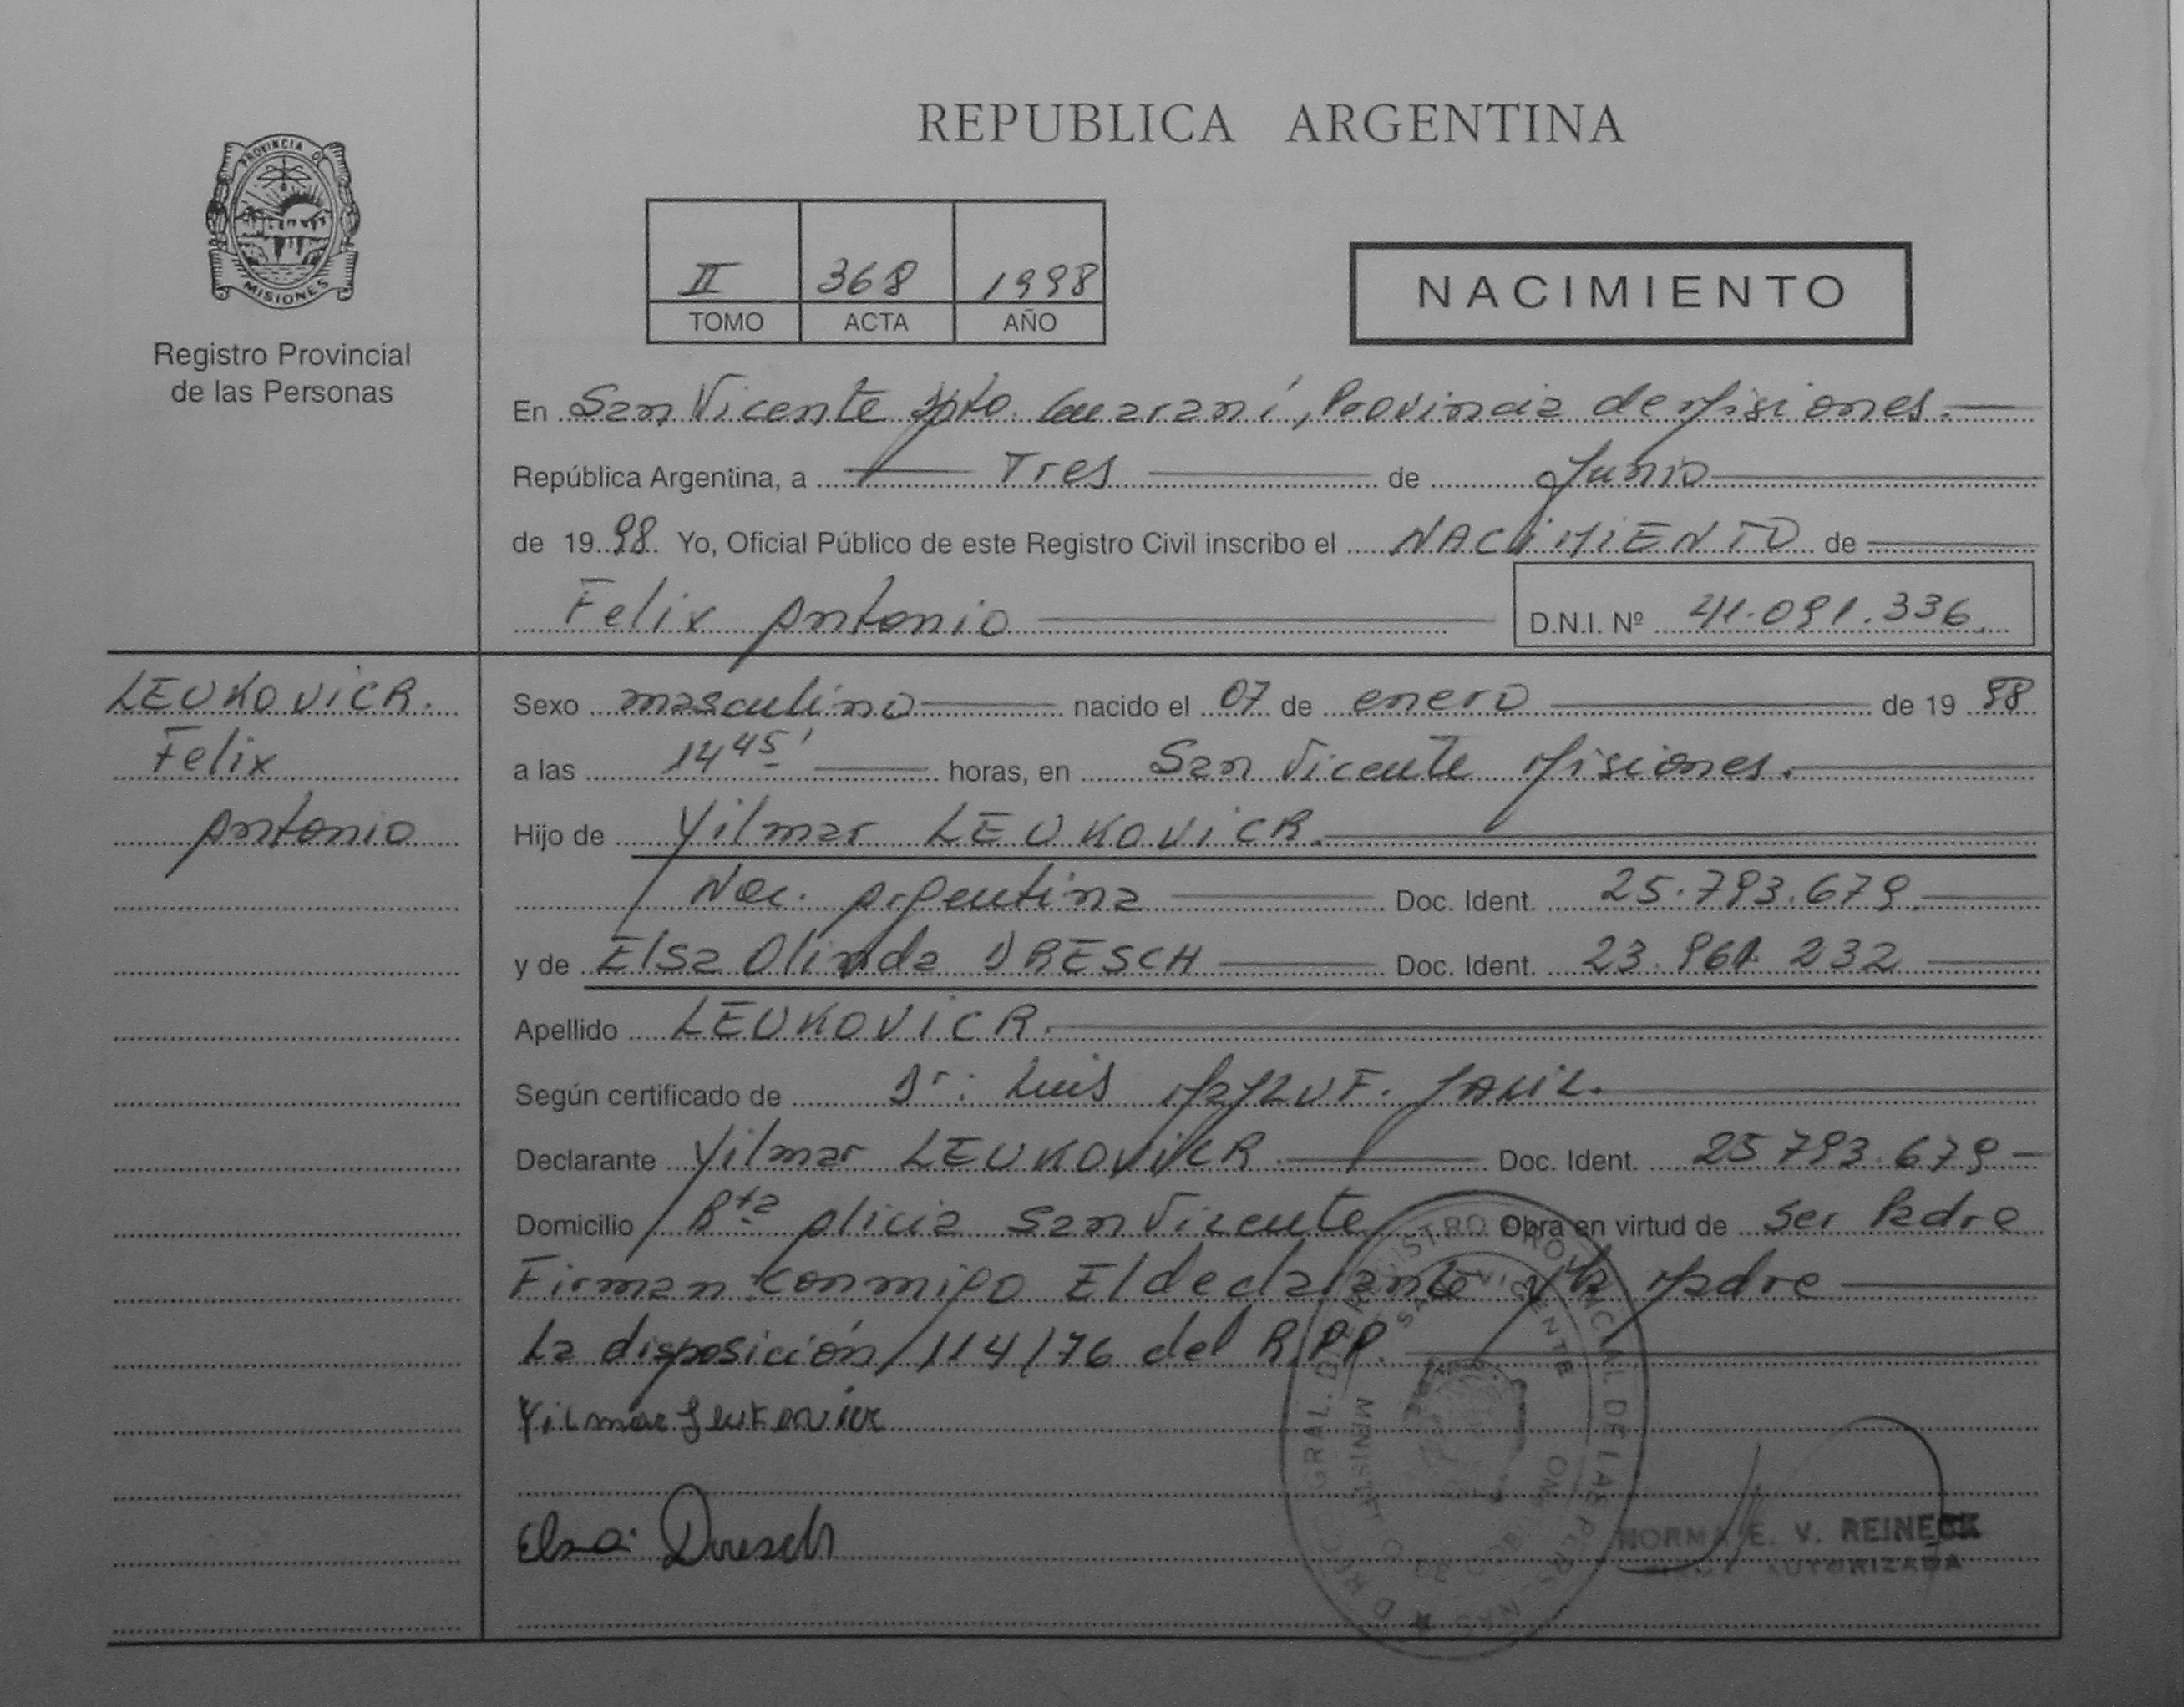 REPUBLICA ARGENTINA
PROVINCIA D
MISIONES
Registro Provincial
de las Personas
II 368 1998
TOMO ACTA AÑO
NACIMIENTO
En San Vicente Dpto. Guaraní, Provincia de Misiones.
República Argentina, a Tres de Junio
de 1998. Yo, Oficial Público de este Registro Civil inscribo el NACIMIENTO de
Felix Antonio D.N.I. Nº 41.091.336.
LEUKOVICR.
Felix
Antonio
Sexo masculino nacido el 07 de enero de 1998
a las 14 45' horas, en San Vicente Misiones.
Hijo de Yilmar LEUKOVICR.
Nac. Argentina Doc. Ident. 25.793.679.
y de Elsa Olinda DRESCH Doc. Ident. 23.961.232
Apellido LEUKOVICR.
Según certificado de Dr: Luis F.
Declarante Yilmar LEUKOVICR Doc. Ident. 25793.679
Domicilio Rta Alicia San Vicente Obra en virtud de ser Padre
Firman conmigo El declarante y la Madre
La disposición 114/76 del R.P.P.
Yilmar Leukovicr
Elsa Dresch
NORMA E. V. REINECK
AUTORIZADA